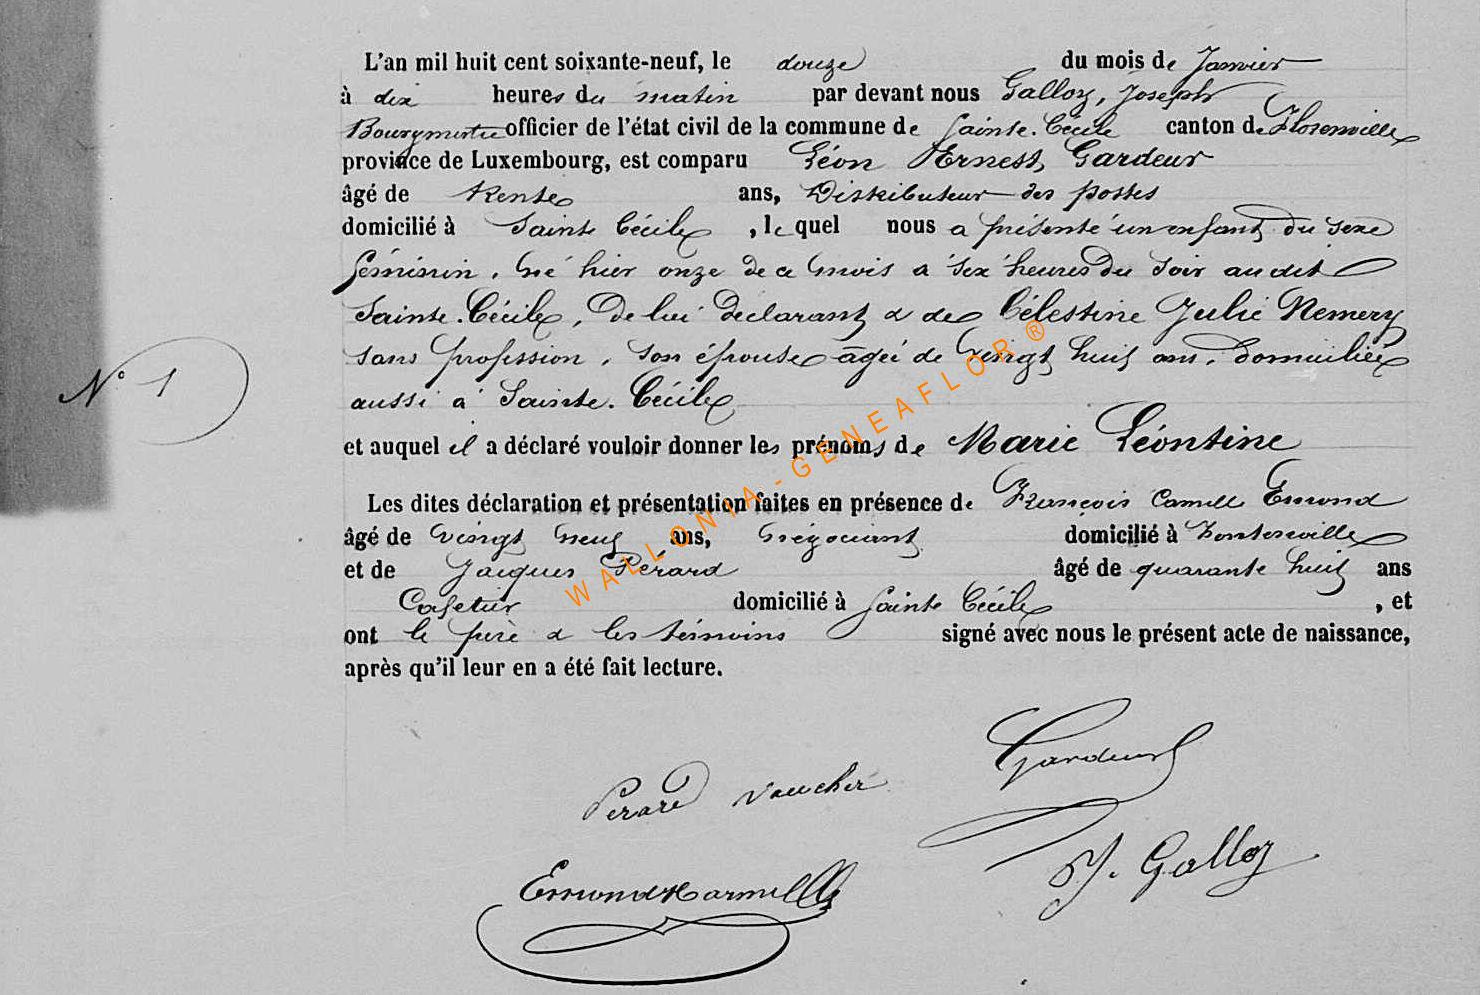 L'an mil huit cent soixante-neuf, le douze du mois de Janvier
à dix heures du matin par devant nous Galloy, Joseph
Bourgmestre officier de l'état civil de la commune de Sainte-Cécile canton de Florenville
province de Luxembourg, est comparu Léon Ernest Gardeur
âgé de trente ans, Distributeur des postes
domicilié à Sainte Cécile, lequel nous a présenté un enfant du sexe
féminin, né hier onze de ce mois à six heures du soir au dit
Sainte-Cécile, de lui déclarant & de Célestine Julie Nemery
sans profession, son épouse âgée de vingt huit ans, domiciliée
N° 1
aussi à Sainte-Cécile
et auquel il a déclaré vouloir donner les prénoms de Marie Léontine
Les dites déclaration et présentation faites en présence de François Camille Emond
âgé de vingt neuf ans, négociant domicilié à
et de Jacques Pérard âgé de quarante huit ans
Cafetier domicilié à Sainte Cécile, et
ont le père & les témoins signé avec nous le présent acte de naissance,
après qu'il leur en a été fait lecture.
Gardeur
Pérard
J. Galloy
WALLONIA-GENEAFLOR®